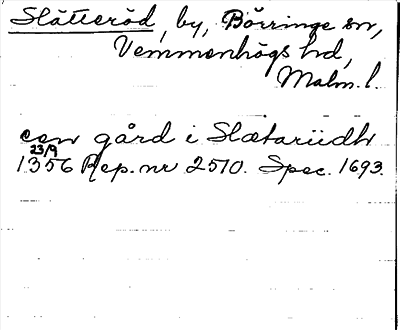 Slätteröd, by, Börringe sn,
Vemmenhögs hd,
Malm. l.
een gård i Slætariidh
23/9
1356 Rep. nr 2510. Spec. 1693.